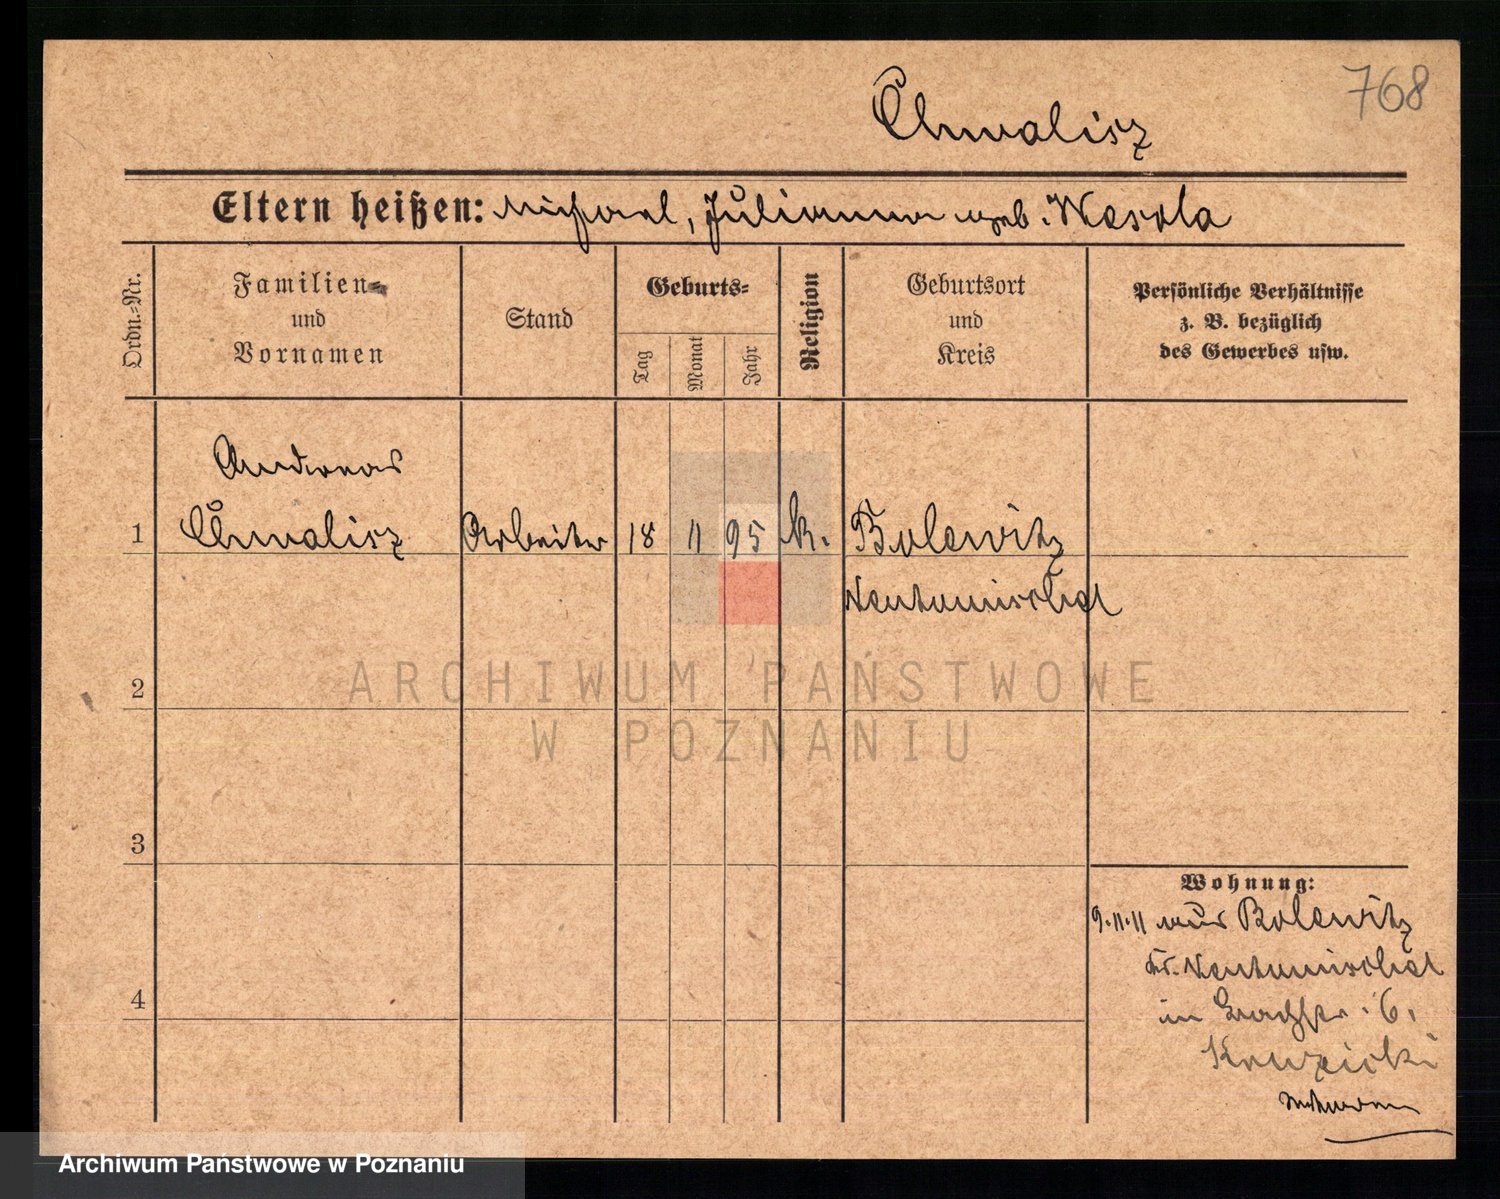 768
Chwalisz
Eltern heißen: Michael, Julianna geb. Wesola
Ordn.-Nr.
Familien-
und
Vornamen
Stand
Geburts-
Tag
Monat
Jahr
Religion
Geburtsort
und
Kreis
Persönliche Verhältnisse
z. B. bezüglich
des Gewerbes usw.
Andreas
1 Chwalisz Arbeiter 18 11 95 k. Bolewitz
Neutomischel
2
3
4
Wohnung:
9.11.11 aus Bolewitz
Kr. Neutomischel
in 6.
ARCHIWUM PAŃSTWOWE
W POZNANIU
Archiwum Państwowe w Poznaniu